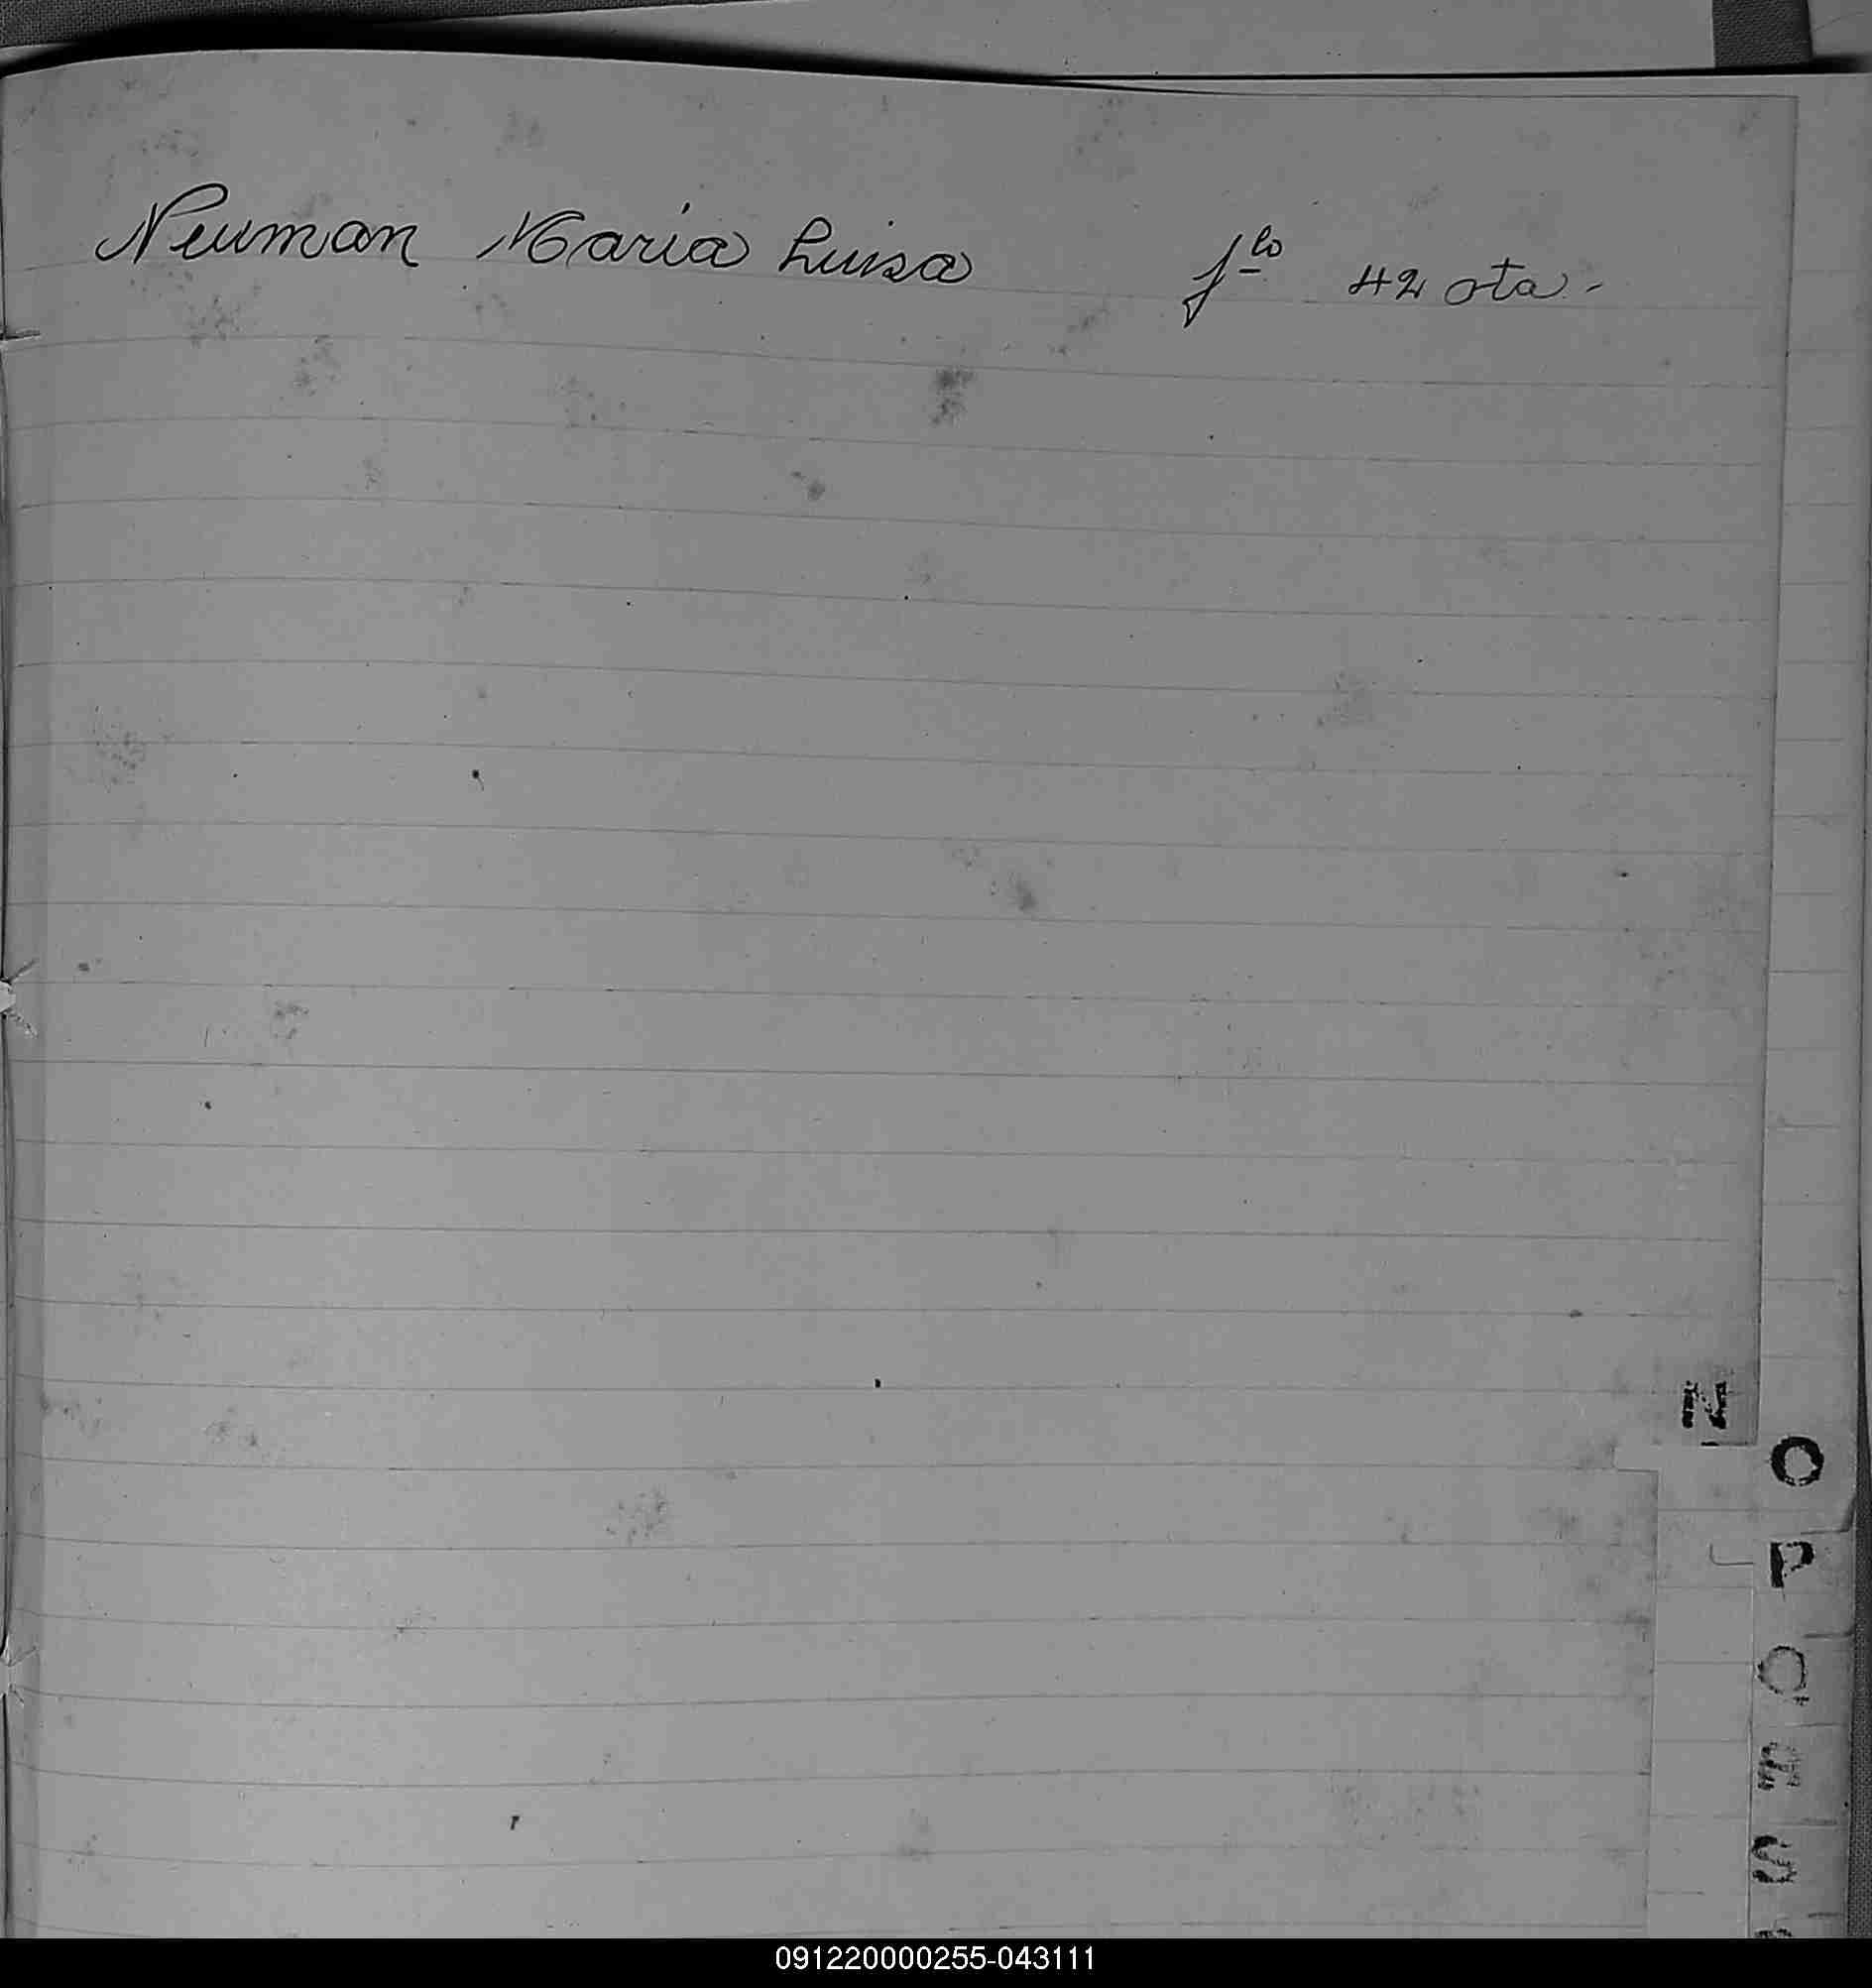 Neuman Maria Luisa flo 42 vta.-
N
O
P
Q
R
S
091220000255-043111